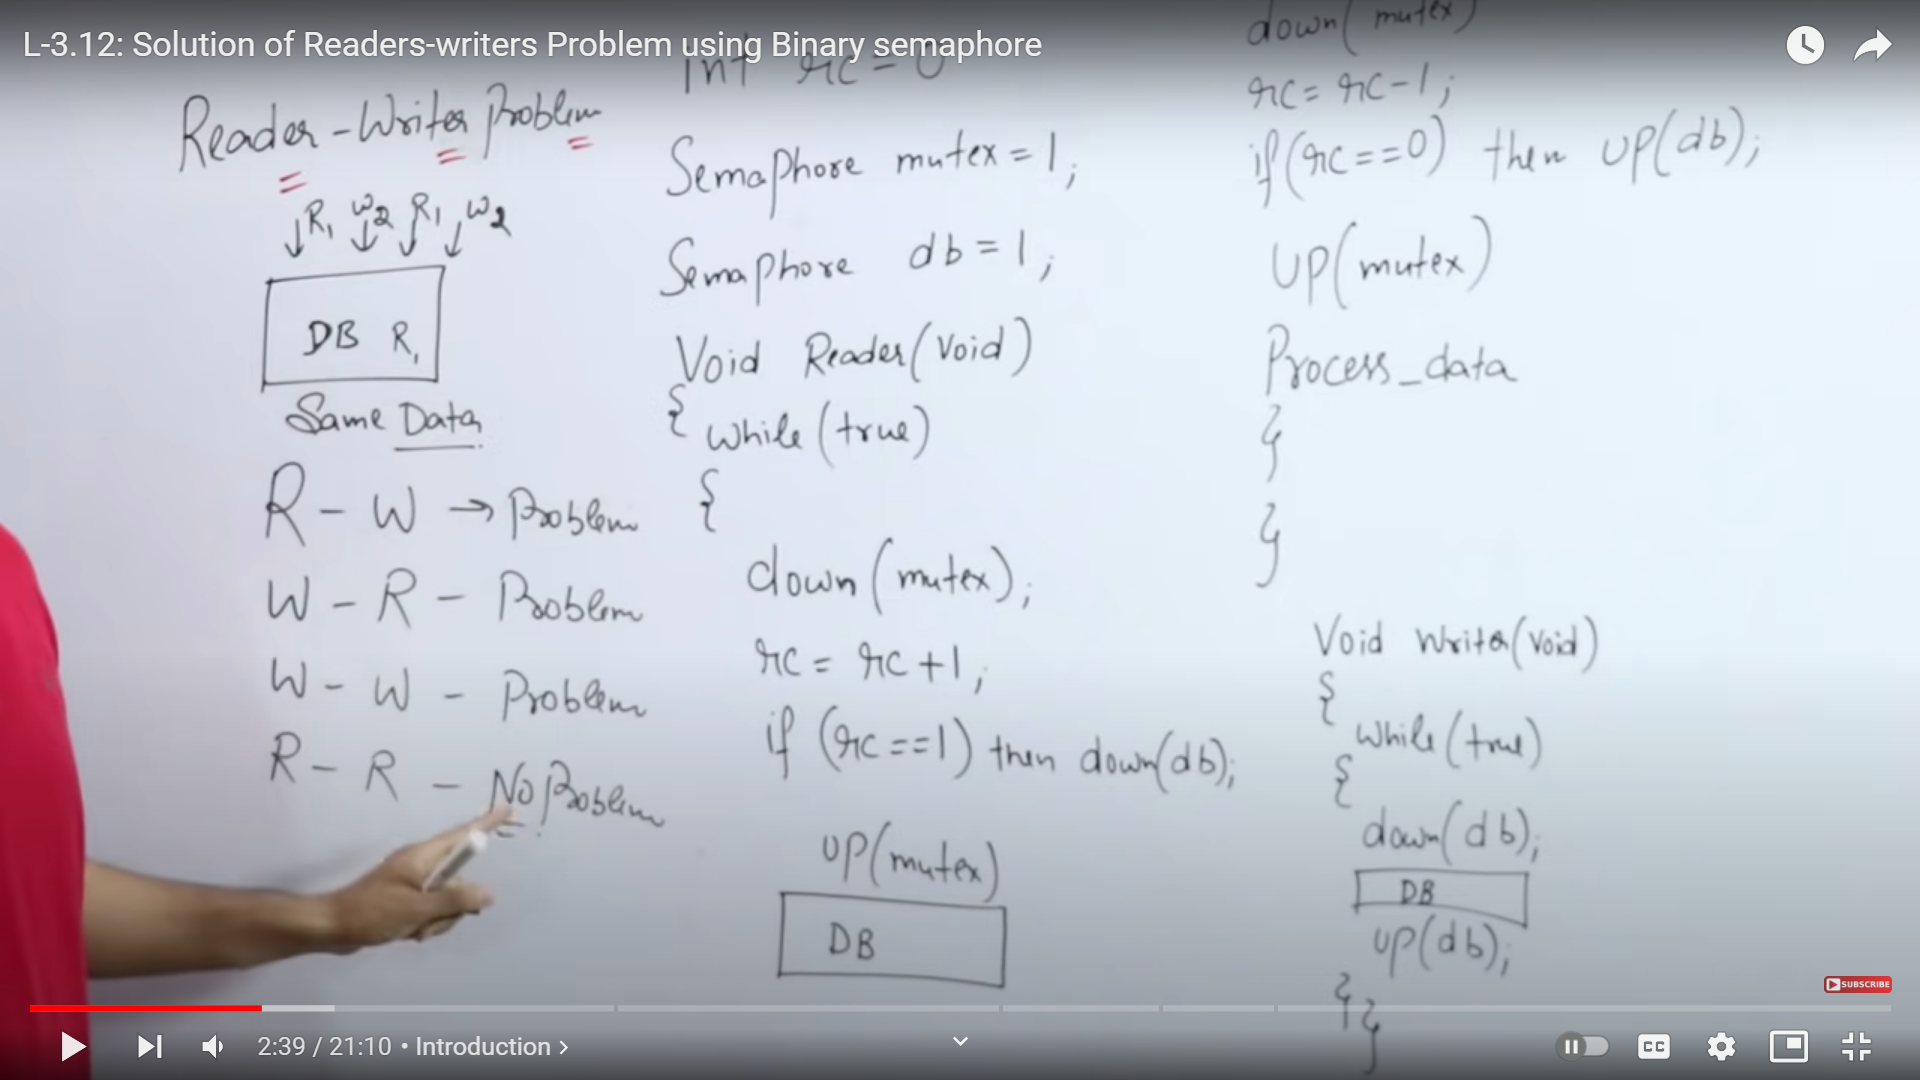 L-3.12: Solution of Readers-writers Problem using Binary semaphore
Reader-Writer Problem
R1 W2 R1 W2
DB R1
Same Data
R - W → Problem
W - R - Problem
W - W - Problem
R - R - No Problem
int rc = 0
Semaphore mutex = 1;
Semaphore db = 1;
Void Reader(Void)
{ while(true)
{
down(mutex);
rc = rc + 1;
if (rc==1) then down(db);
UP(mutex)
DB
down(mutex)
rc = rc - 1;
if(rc==0) then UP(db);
UP(mutex)
Process_data
}
}
Void Writer(Void)
{
while(true)
{
down(db);
DB
UP(db);
}
}
SUBSCRIBE
2:39 / 21:10 • Introduction >
CC